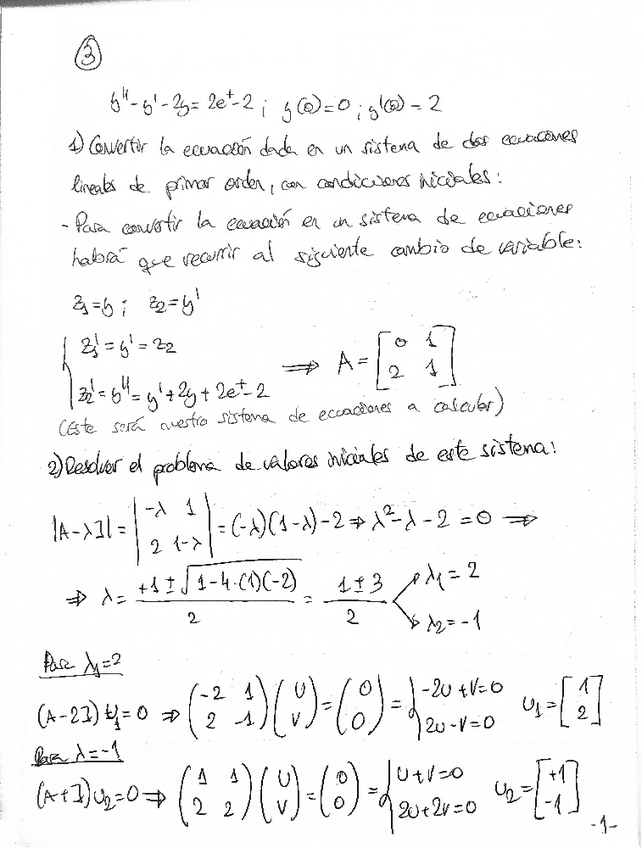 3
y'' - y' - 2y = 2e^t - 2 ; y(0) = 0 ; y'(0) = 2
1) Convertir la ecuación dada en un sistema de dos ecuaciones
lineales de primer orden, con condiciones iniciales:
- Para convertir la ecuación en un sistema de ecuaciones
habrá que recurrir al siguiente cambio de variable:
z1 = y ; z2 = y'
{ z1' = y' = z2
z2' = y'' = y' + 2y + 2e^t - 2 ⟹ A = [0 1; 2 1]
(Este será nuestro sistema de ecuaciones a calcular)
2) Resolver el problema de valores iniciales de este sistema:
|A - λI| = |-λ 1; 2 1-λ| = (-λ)(1-λ) - 2 ⇒ λ² - λ - 2 = 0 ⇒
⇒ λ = (+1 ± √(1 - 4·(1)(-2))) / 2 = (1 ± 3) / 2 → λ1 = 2
→ λ2 = -1
Para λ1 = 2
(A - 2I) u1 = 0 ⇒ (-2 1; 2 -1) (U; V) = (0; 0) = { -2U + V = 0; 2U - V = 0 u1 = [1; 2]
Para λ = -1
(A + I) u2 = 0 ⇒ (1 1; 2 2) (U; V) = (0; 0) = { U + V = 0; 2U + 2V = 0 u2 = [+1; -1]
-1-